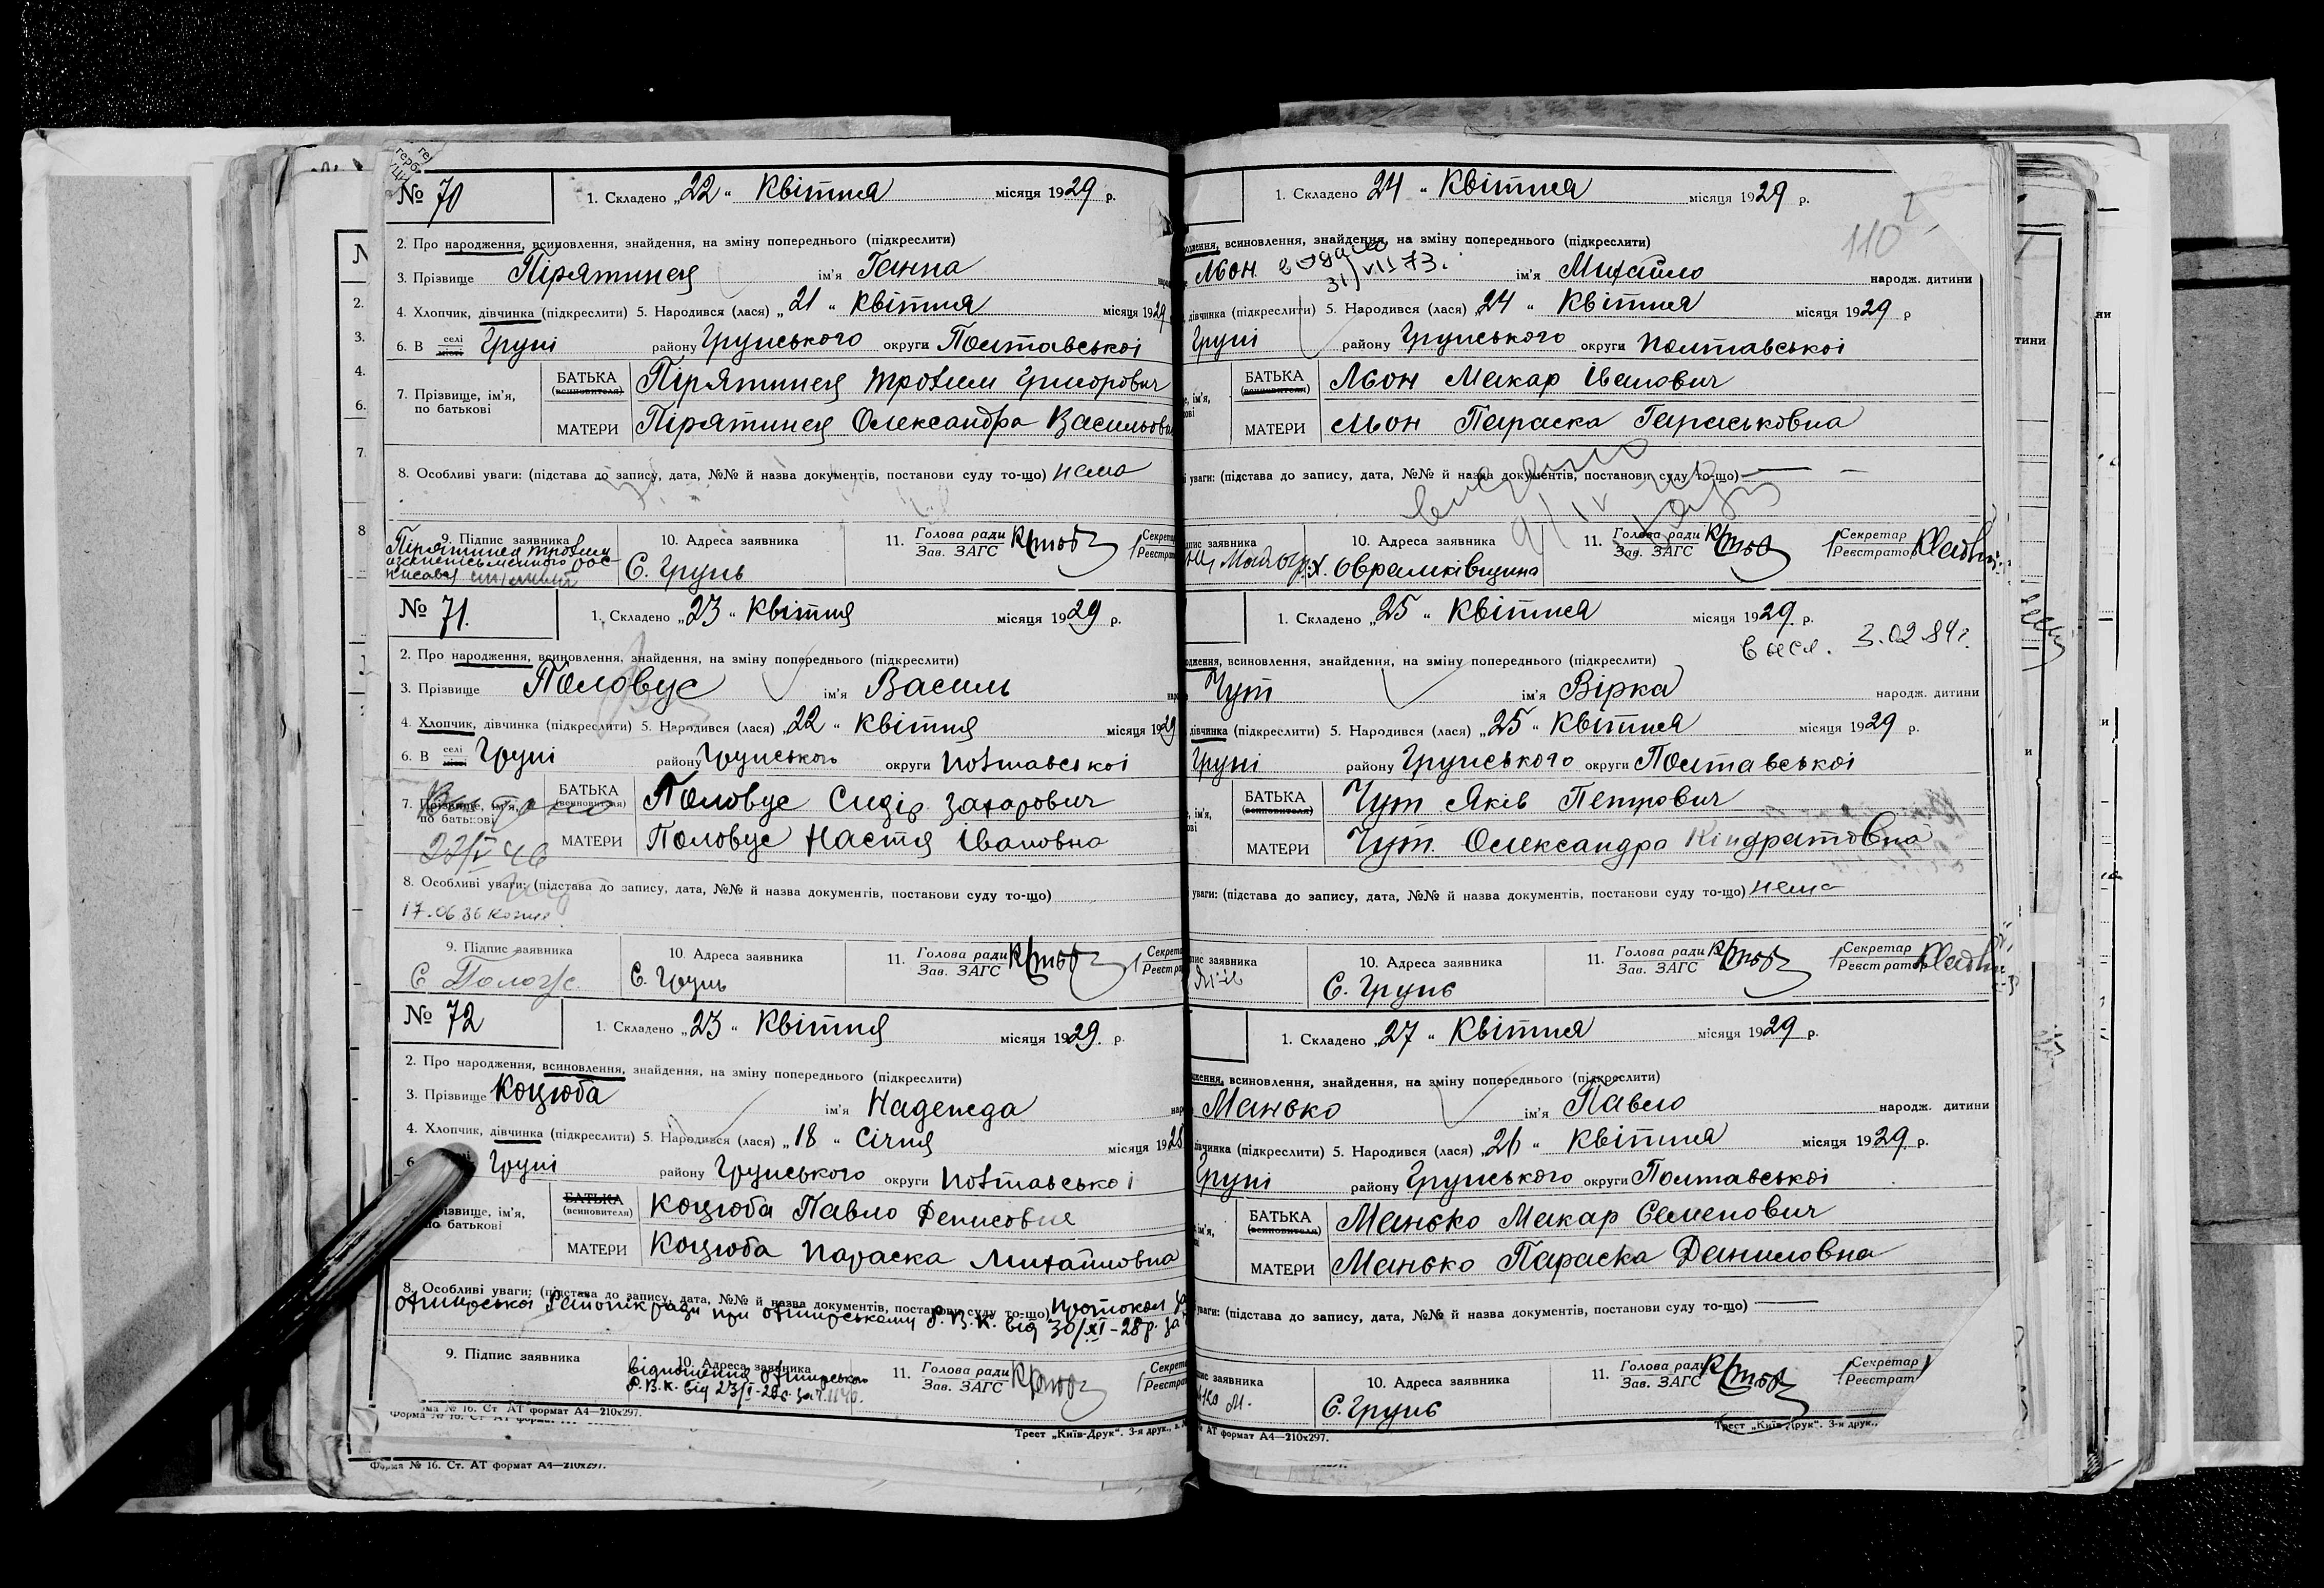 № 70
1. Складено „22“ Квітня місяця 1929 р.
2. Про народження, всиновлення, знайдення, на зміну попереднього (підкреслити)
3. Прізвище Пірятинся ім'я Ганна
4. Хлопчик, дівчинка (підкреслити) 5. Народився (лася) „21“ Квітня місяця 1929
6. В селі місті Груні району Грунського округи Полтавської
7. Прізвище, ім'я, по батькові
БАТЬКА (всиновителя) Пірятинся Трохим Григорович
МАТЕРИ Пірятинся Олександра
8. Особливі уваги: (підстава до запису, дата, №№ й назва документів, постанови суду то-що) нема
9. Підпис заявника
10. Адреса заявника
С. Грунь
11. Голова ради
Зав. ЗАГС
№ 71.
1. Складено „23“ Квітня місяця 1929 р.
2. Про народження, всиновлення, знайдення, на зміну попереднього (підкреслити)
3. Прізвище Половує ім'я Василь
4. Хлопчик, дівчинка (підкреслити) 5. Народився (лася) „22“ Квітня місяця 1929
6. В селі місті Груні району Грунського округи Полтавської
7. Прізвище, ім'я, по батькові
БАТЬКА (всиновителя) Половує Сидір Захарович
МАТЕРИ Половує Настя Івановна
8. Особливі уваги: (підстава до запису, дата, №№ й назва документів, постанови суду то-що)
9. Підпис заявника
10. Адреса заявника
С. Грунь
11. Голова ради
Зав. ЗАГС
№ 72
1. Складено „23“ Квітня місяця 1929. р.
2. Про народження, всиновлення, знайдення, на зміну попереднього (підкреслити)
3. Прізвище Коцюба ім'я Надежда
4. Хлопчик, дівчинка (підкреслити) 5. Народився (лася) „18“ Січня місяця 1928
Груні району Грунського округи Полтавської
БАТЬКА (всиновителя) Коцюба Павло Денисович
МАТЕРИ Коцюба Параска Михайловна
8. Особливі уваги: (підстава до запису, дата, №№ й назва документів, постанови суду то-що) протокол
Охтирському Р.В.К. від 30/XI-28р. за
9. Підпис заявника
10. Адреса заявника
11. Голова ради
Зав. ЗАГС
Трест „Київ-Друк“. 3-я друк.,
Форма № 16. Ст. АТ формат А4—210x297.
1. Складено 24 “ Квітня місяця 1929 р.
110
всиновлення, знайдення, на зміну попереднього (підкреслити)
Льон ім'я Михайло народж. дитини
31/VII 73.
дівчинка (підкреслити) 5. Народився (лася) „24“ Квітня місяця 1929 р
Груні району Грунського округи Полтавської
БАТЬКА (всиновителя) Льон Макар Іванович
МАТЕРИ Льон Параска Тараськовна
уваги: (підстава до запису, дата, №№ й назва документів, постанови суду то-що) — —
заявника
10. Адреса заявника
х. Овраменківщина
11. Голова ради
Зав. ЗАГС
Секретар
Реєстратор
1. Складено „25“ Квітня місяця 1929. р.
3.02.84г.
всиновлення, знайдення, на зміну попереднього (підкреслити)
Чут ім'я Вірка народж. дитини
дівчинка (підкреслити) 5. Народився (лася) „25“ Квітня місяця 1929 р.
Груні району Грунського округи Полтавської
БАТЬКА (всиновителя) Чут Яків Петрович
МАТЕРИ Чут Олександра Кіндратовна
уваги: (підстава до запису, дата, №№ й назва документів, постанови суду то-що) нема
заявника
10. Адреса заявника
С. Грунь
11. Голова ради
Зав. ЗАГС
Секретар
Реєстратор
1. Складено „27“ Квітня місяця 1929. р.
всиновлення, знайдення, на зміну попереднього (підкреслити)
Манько ім'я Павло народж. дитини
дівчинка (підкреслити) 5. Народився (лася) „26“ Квітня місяця 1929. р.
Груні району Грунського округи Полтавської
БАТЬКА (всиновителя) Манько Макар Семенович
МАТЕРИ Манько Параска Даниловна
уваги: (підстава до запису, дата, №№ й назва документів, постанови суду то-що) —
заявника
10. Адреса заявника
С. Грунь
11. Голова ради
Зав. ЗАГС
Секретар
АТ формат А4—210x297.
Трест „Київ-Друк“. 3-я друк.,